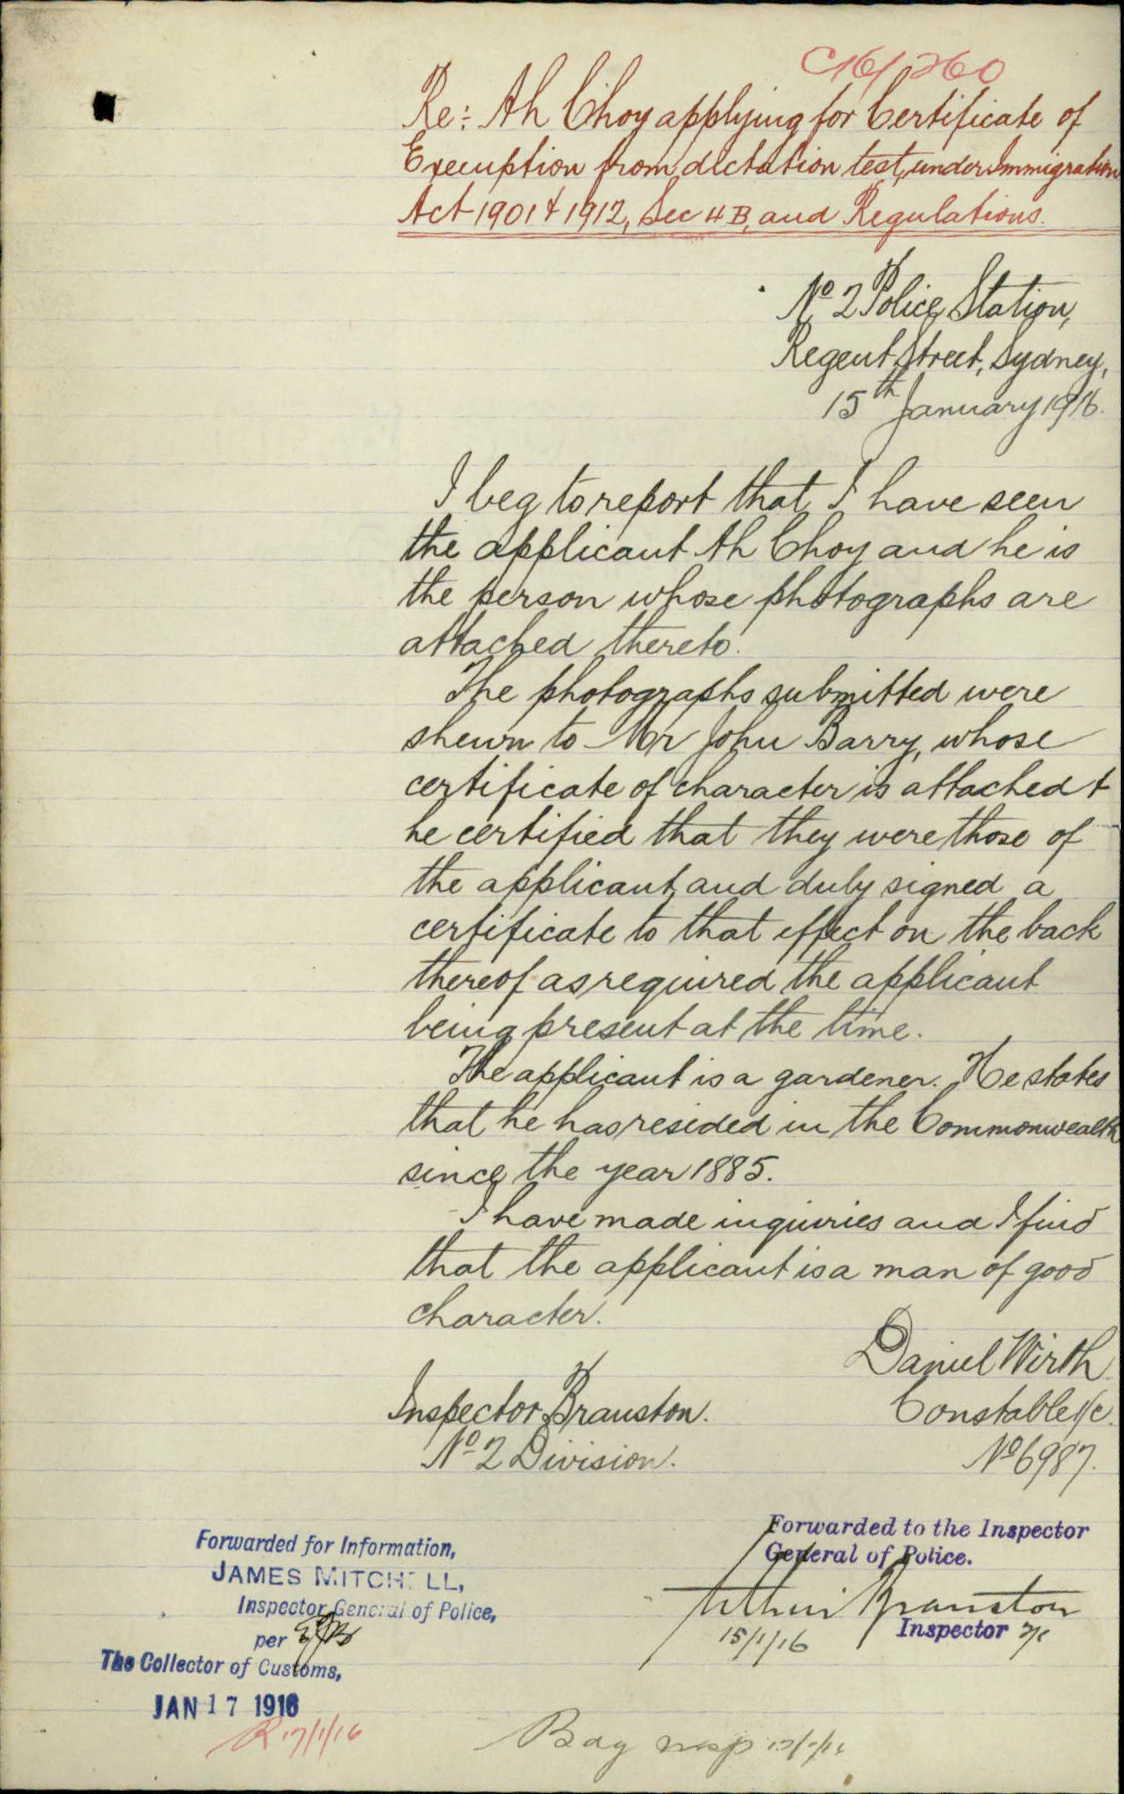 C16/260
Re:- Ah Choy applying for Certificate of
Exemption from dictation test, under Immigration
Act 1901 & 1912, Sec 4B, and Regulations.
No 2 Police Station,
Regent Street, Sydney,
15th January 1916.
I beg to report that I have seen
the applicant Ah Choy and he is
the person whose photographs are
attached thereto.
The photographs submitted were
shewn to Mr John Barry, whose
certificate of character is attached &
he certified that they were those of
the applicant, and duly signed a
certificate to that effect on the back
thereof as required, the applicant
being present at the time.
The applicant is a gardener. He states
that he has resided in the Commonwealth
since the year 1885.
I have made inquiries and I find
that the applicant is a man of good
character.
Daniel Wirth
Constable 1/c.
No 6987.
Inspector Branston.
No 2 Division.
Forwarded to the Inspector
General of Police.
Arthur Branston
Inspector
15/1/16
Forwarded for Information,
JAMES MITCHELL,
Inspector General of Police,
per
The Collector of Customs,
JAN 17 1916
R 17/1/16
Bag